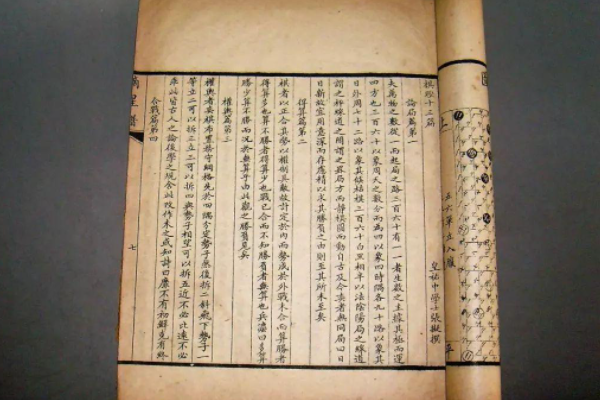 棋經十三篇
論局篇第一
皇祐中學士張擬撰
夫萬物之數從一而起局之路三百六十有一一者生數之主據其極而運
四方也三百六十以象周天之數分而為四以象四時隅各九十路以象其
日外周七十二路以象其候枯棋三百六十白黑相半以法陰陽局之線道
謂之枰線道之間謂之罫局方而靜棋圓而動自古及今奕者無同局曰日
日新故宜用意深而存慮精以求其勝負之由則至其所未至矣
得算篇第二
棋者以正合其勢以權制其敵故計定於內而勢成於外戰未合而算勝者
得算多也算不勝者得算少也戰已合而不知勝負者無算也兵法曰多算
勝少算不勝而況於無算乎由此觀之勝負見矣
權輿篇第三
權輿者奕棋布置務守綱格先於四隅分定勢子然後拆二斜飛下勢子一
等立二可以拆三立三可以拆四與勢子相望可以拆五近不必比遠不必
乖此皆古人之論後學之規舍此改作未之或知詩曰靡不有初鮮克有終
合戰篇第四
星譜
七